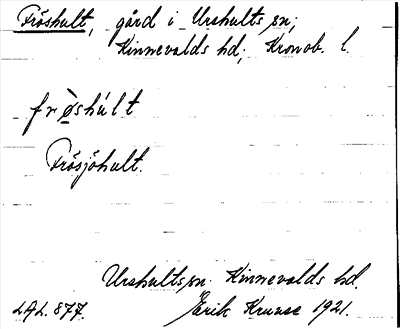 Fröshult, gård i Urshults sn;
Kinnevalds hd, Kronob. l.
frø̀shúlt
Frösjöhult.
Urshults sn. Kinnevalds hd.
LAL. 877. Erik Kruuse 1921.